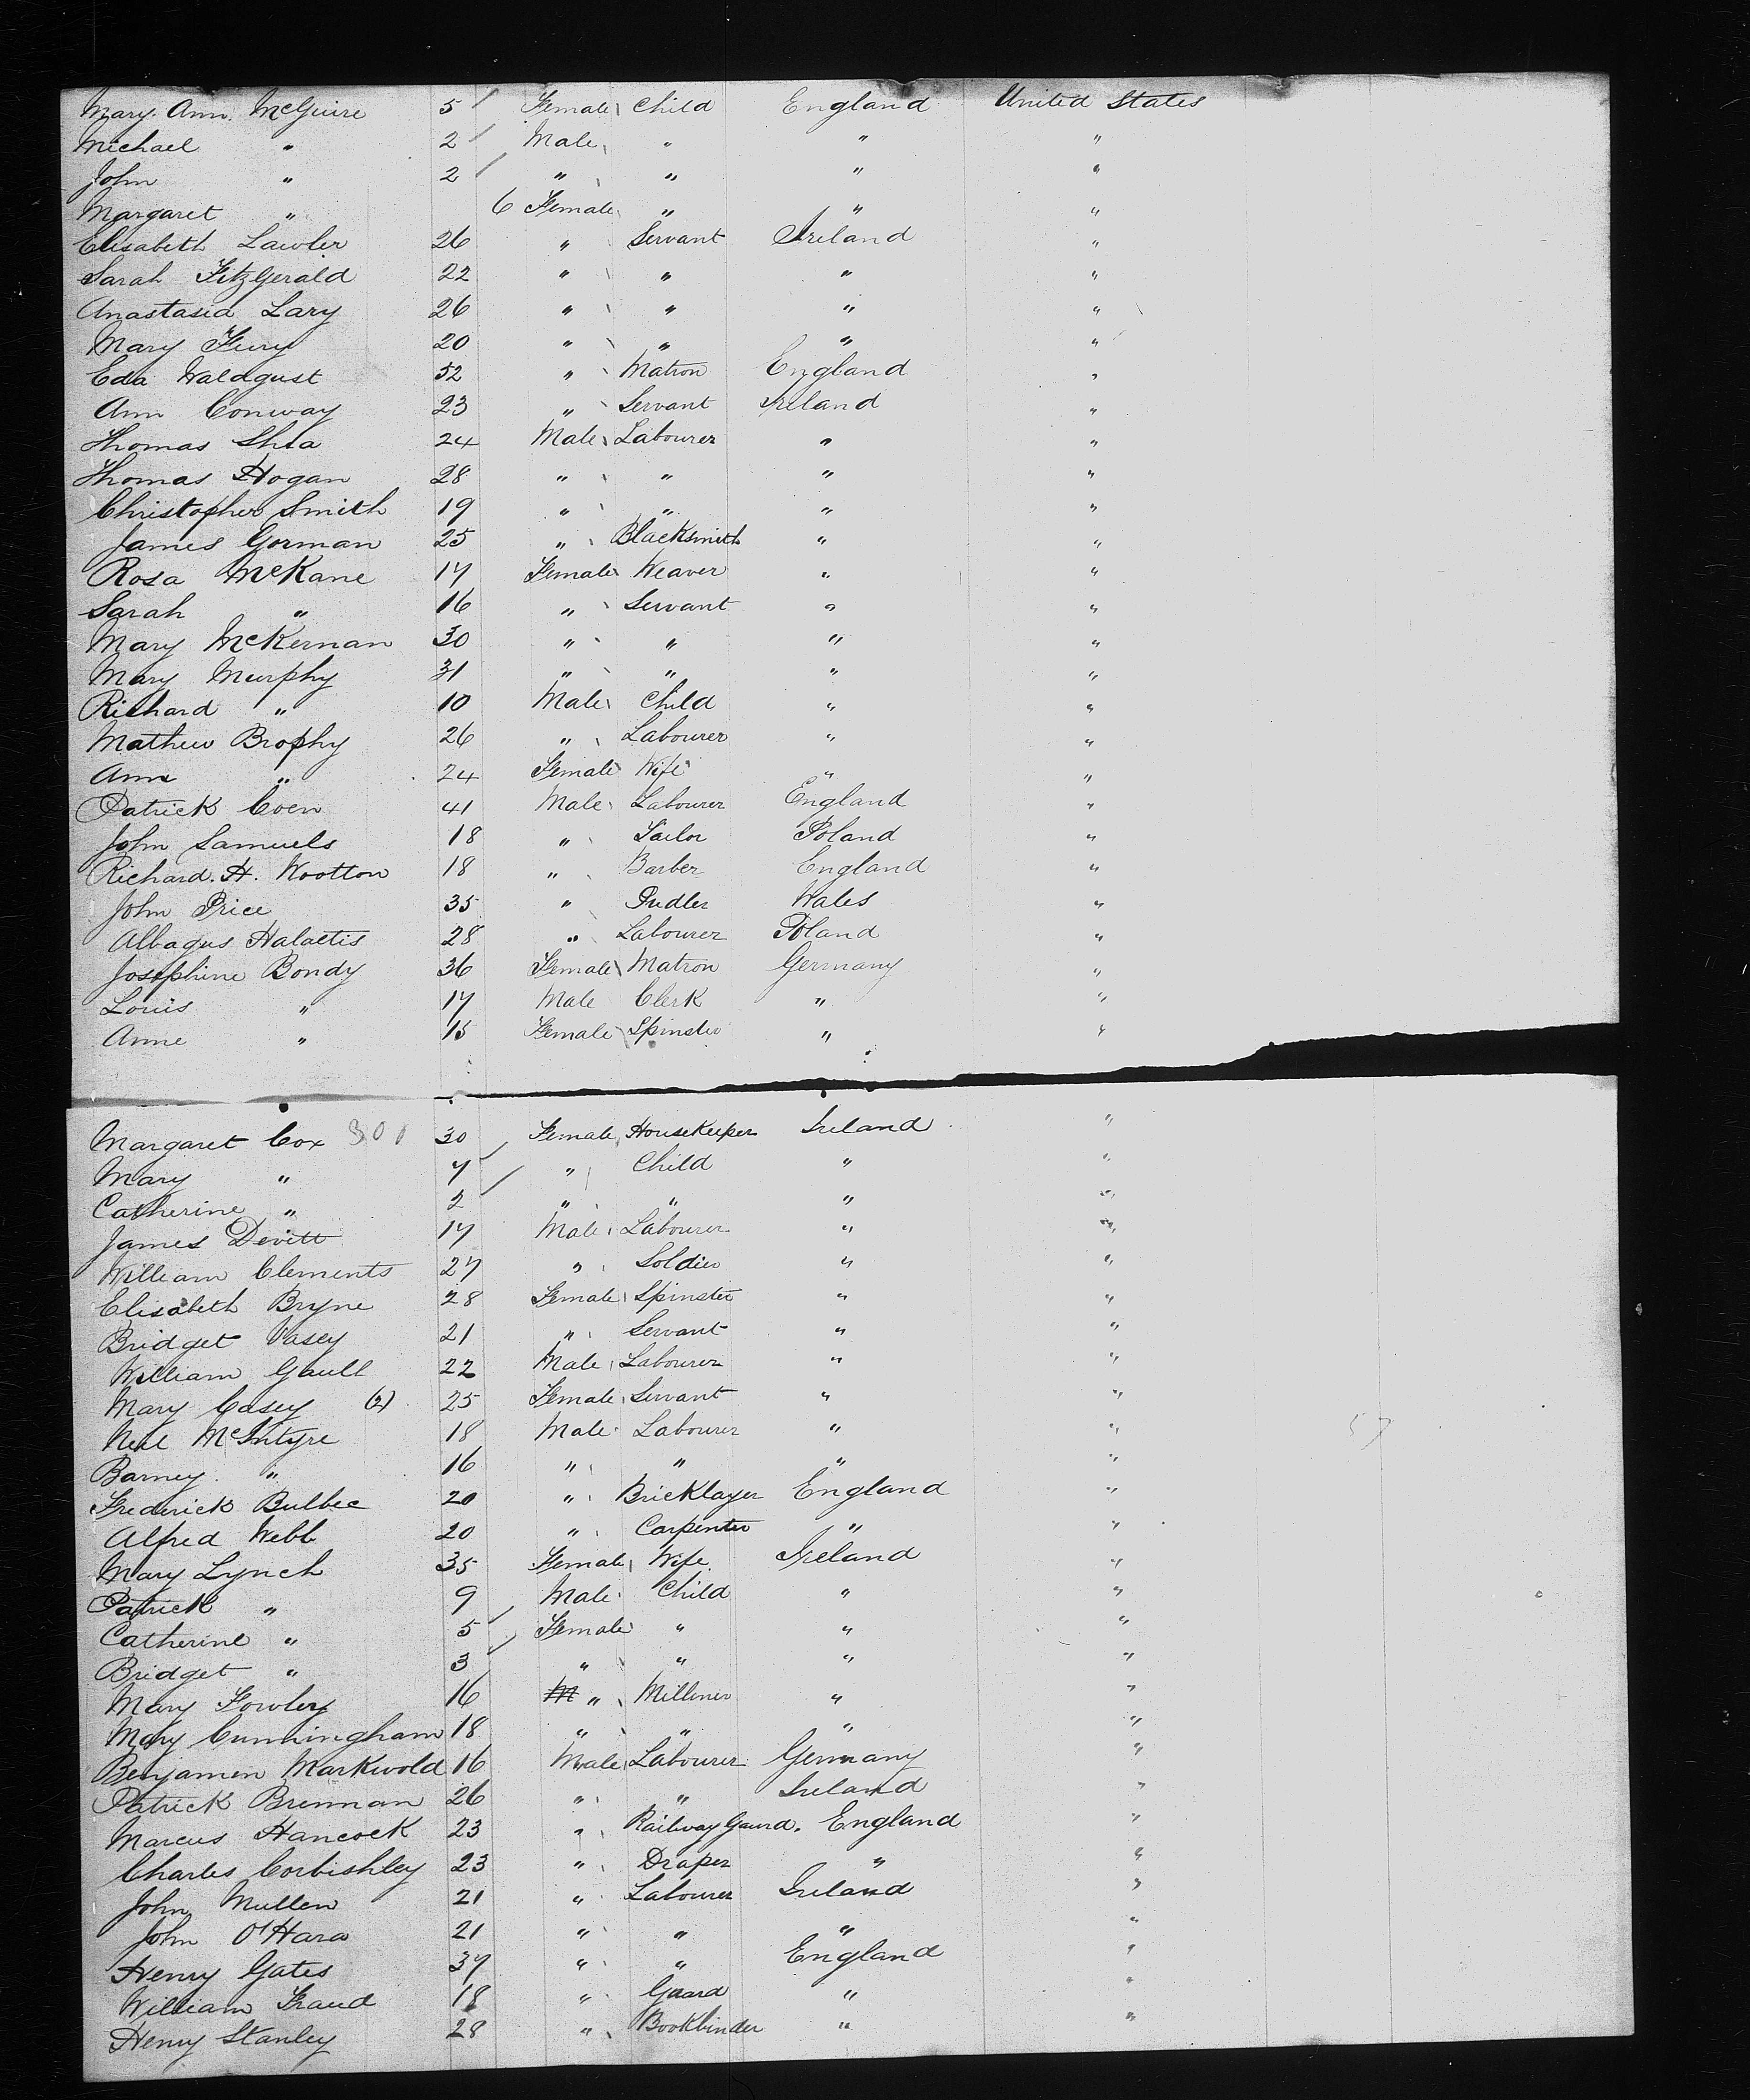 Mary. Ann. McGuire 5 Female Child England United States
Michael " 2 Male " " "
John " 2 " " " "
Margaret " 6 Female " " "
Elisabeth Lawler 26 " Servant Ireland "
Sarah FitzGerald 22 " " " "
Anastasia Lary 26 " " " "
Mary Fury 20 " " " "
Eda Waldgust 52 " Matron England "
Ann Conway 23 " Servant Ireland "
Thomas Shea 24 Male Labourer " "
Thomas Hogan 28 " " " "
Christopher Smith 19 " " " "
James Gorman 25 " Blacksmith " "
Rosa McKane 17 Female Weaver " "
Sarah " 16 " Servant " "
Mary McKernan 30 " " " "
Mary Murphy 31 " " " "
Richard " 10 Male Child " "
Mathew Brophy 26 " Labourer " "
Ann " 24 Female Wife " "
Patrick Coen 41 Male Labourer England "
John Samuels 18 " Tailor Poland "
Richard. H. Wootton 18 " Barber England "
John Price 35 " Pudler Wales "
Albagus Halactis 28 " Labourer Poland "
Josephine Bondy 36 Female Matron Germany "
Louis " 17 Male Clerk " "
Anne " 15 Female Spinster " "
Margaret Cox 301 30 Female Housekeeper Ireland "
Mary " 7 " Child " "
Catherine " 2 " " " "
James Devitt 17 Male Labourer " "
William Clements 27 " Soldier " "
Elisabeth Bryne 28 Female Spinster " "
Bridget Vasey 21 " Servant " "
William Gault 22 Male Labourer " "
Mary Casey (2) 25 Female Servant " "
Neil McIntyre 18 Male Labourer " " 57
Barney. " 16 " " " "
Frederick Bulbec 20 " Bricklayer England "
Alfred Webb 20 " Carpenter " "
Mary Lynch 35 Female Wife Ireland "
Patrick " 9 Male Child " "
Catherine " 5 Female " " "
Bridget " 3 " " " "
Mary Fowley 16 M " Milliner " "
Mary Cunningham 18 " " " "
Benjamin Markwold 16 Male Labourer Germany "
Patrick Brennan 26 " " Ireland "
Marcus Hancock 23 " Railway Gaurd. England "
Charles Corbishley 23 " Draper " "
John Mullen 21 " Labourer Ireland "
John O'Hara 21 " " " "
Henry Gates 37 " " England "
William Fraud 18 " Gaard " "
Henry Stanley 28 " Bookbinder " "